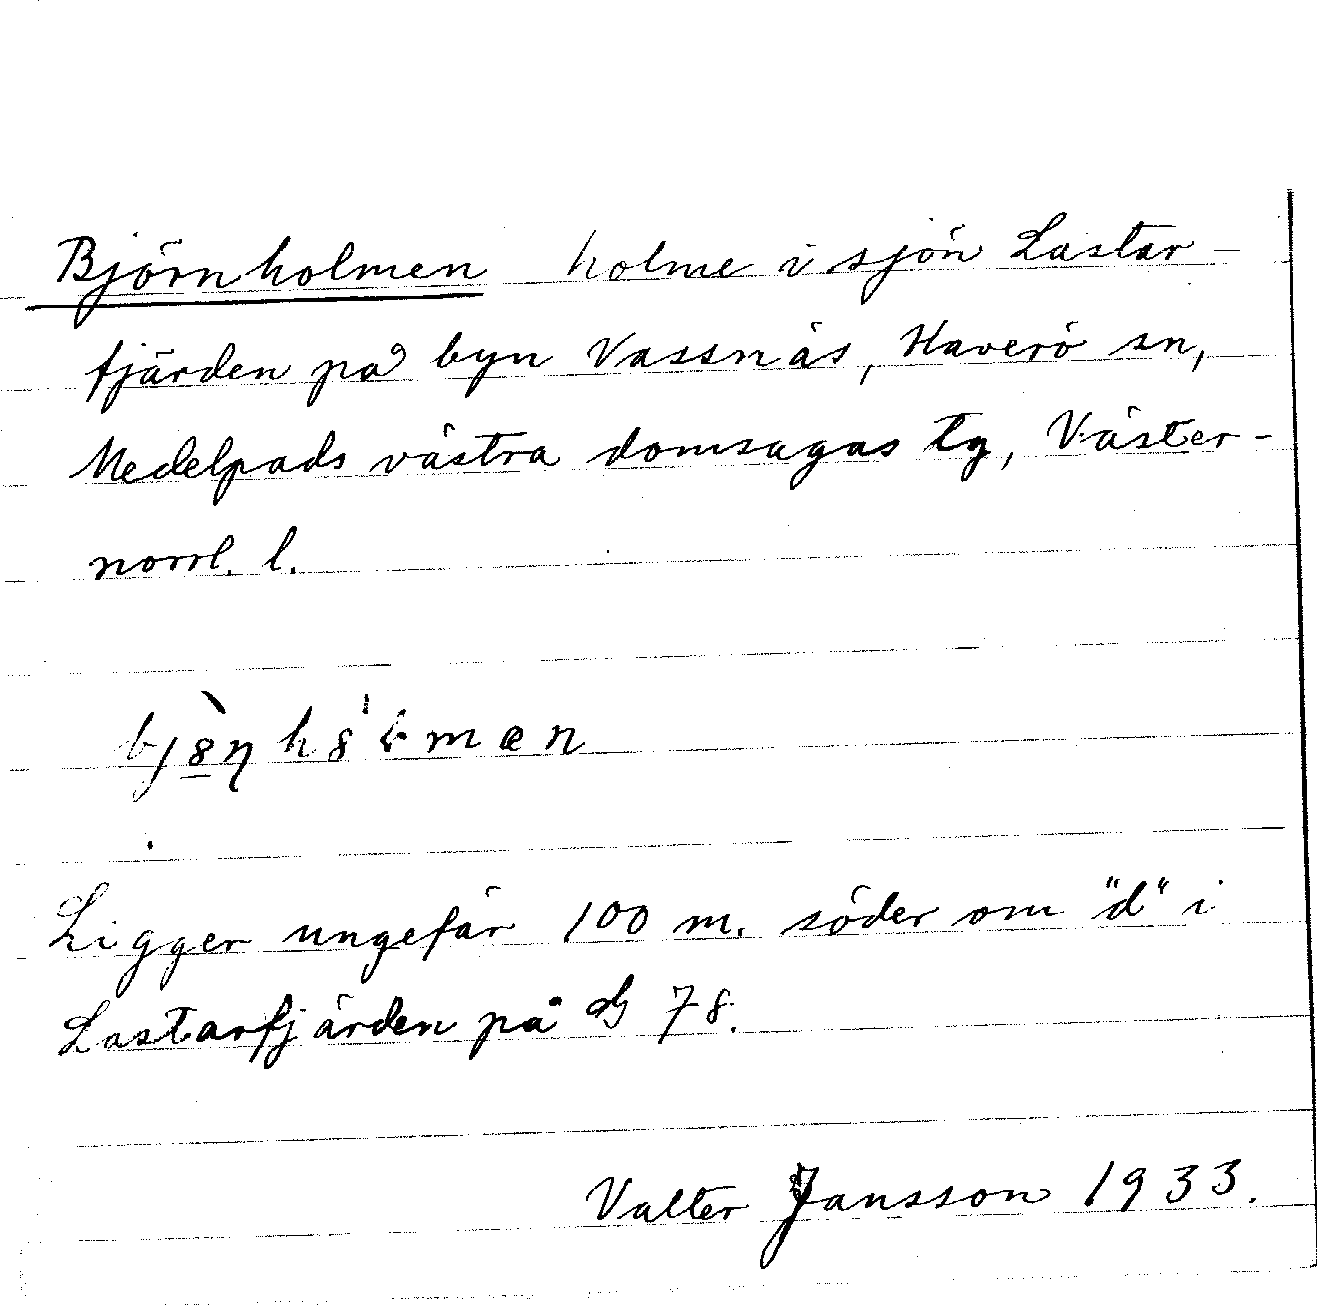 Björnholmen holme i sjön Lastar-
fjärden på byn Vassnäs, Haverö sn,
Medelpads västra domsagas tg, Väster-
norrl. l.
Ligger ungefär 100 m. söder om "d" i
Lastarfjärden på 78.
Valter Jansson 1933.